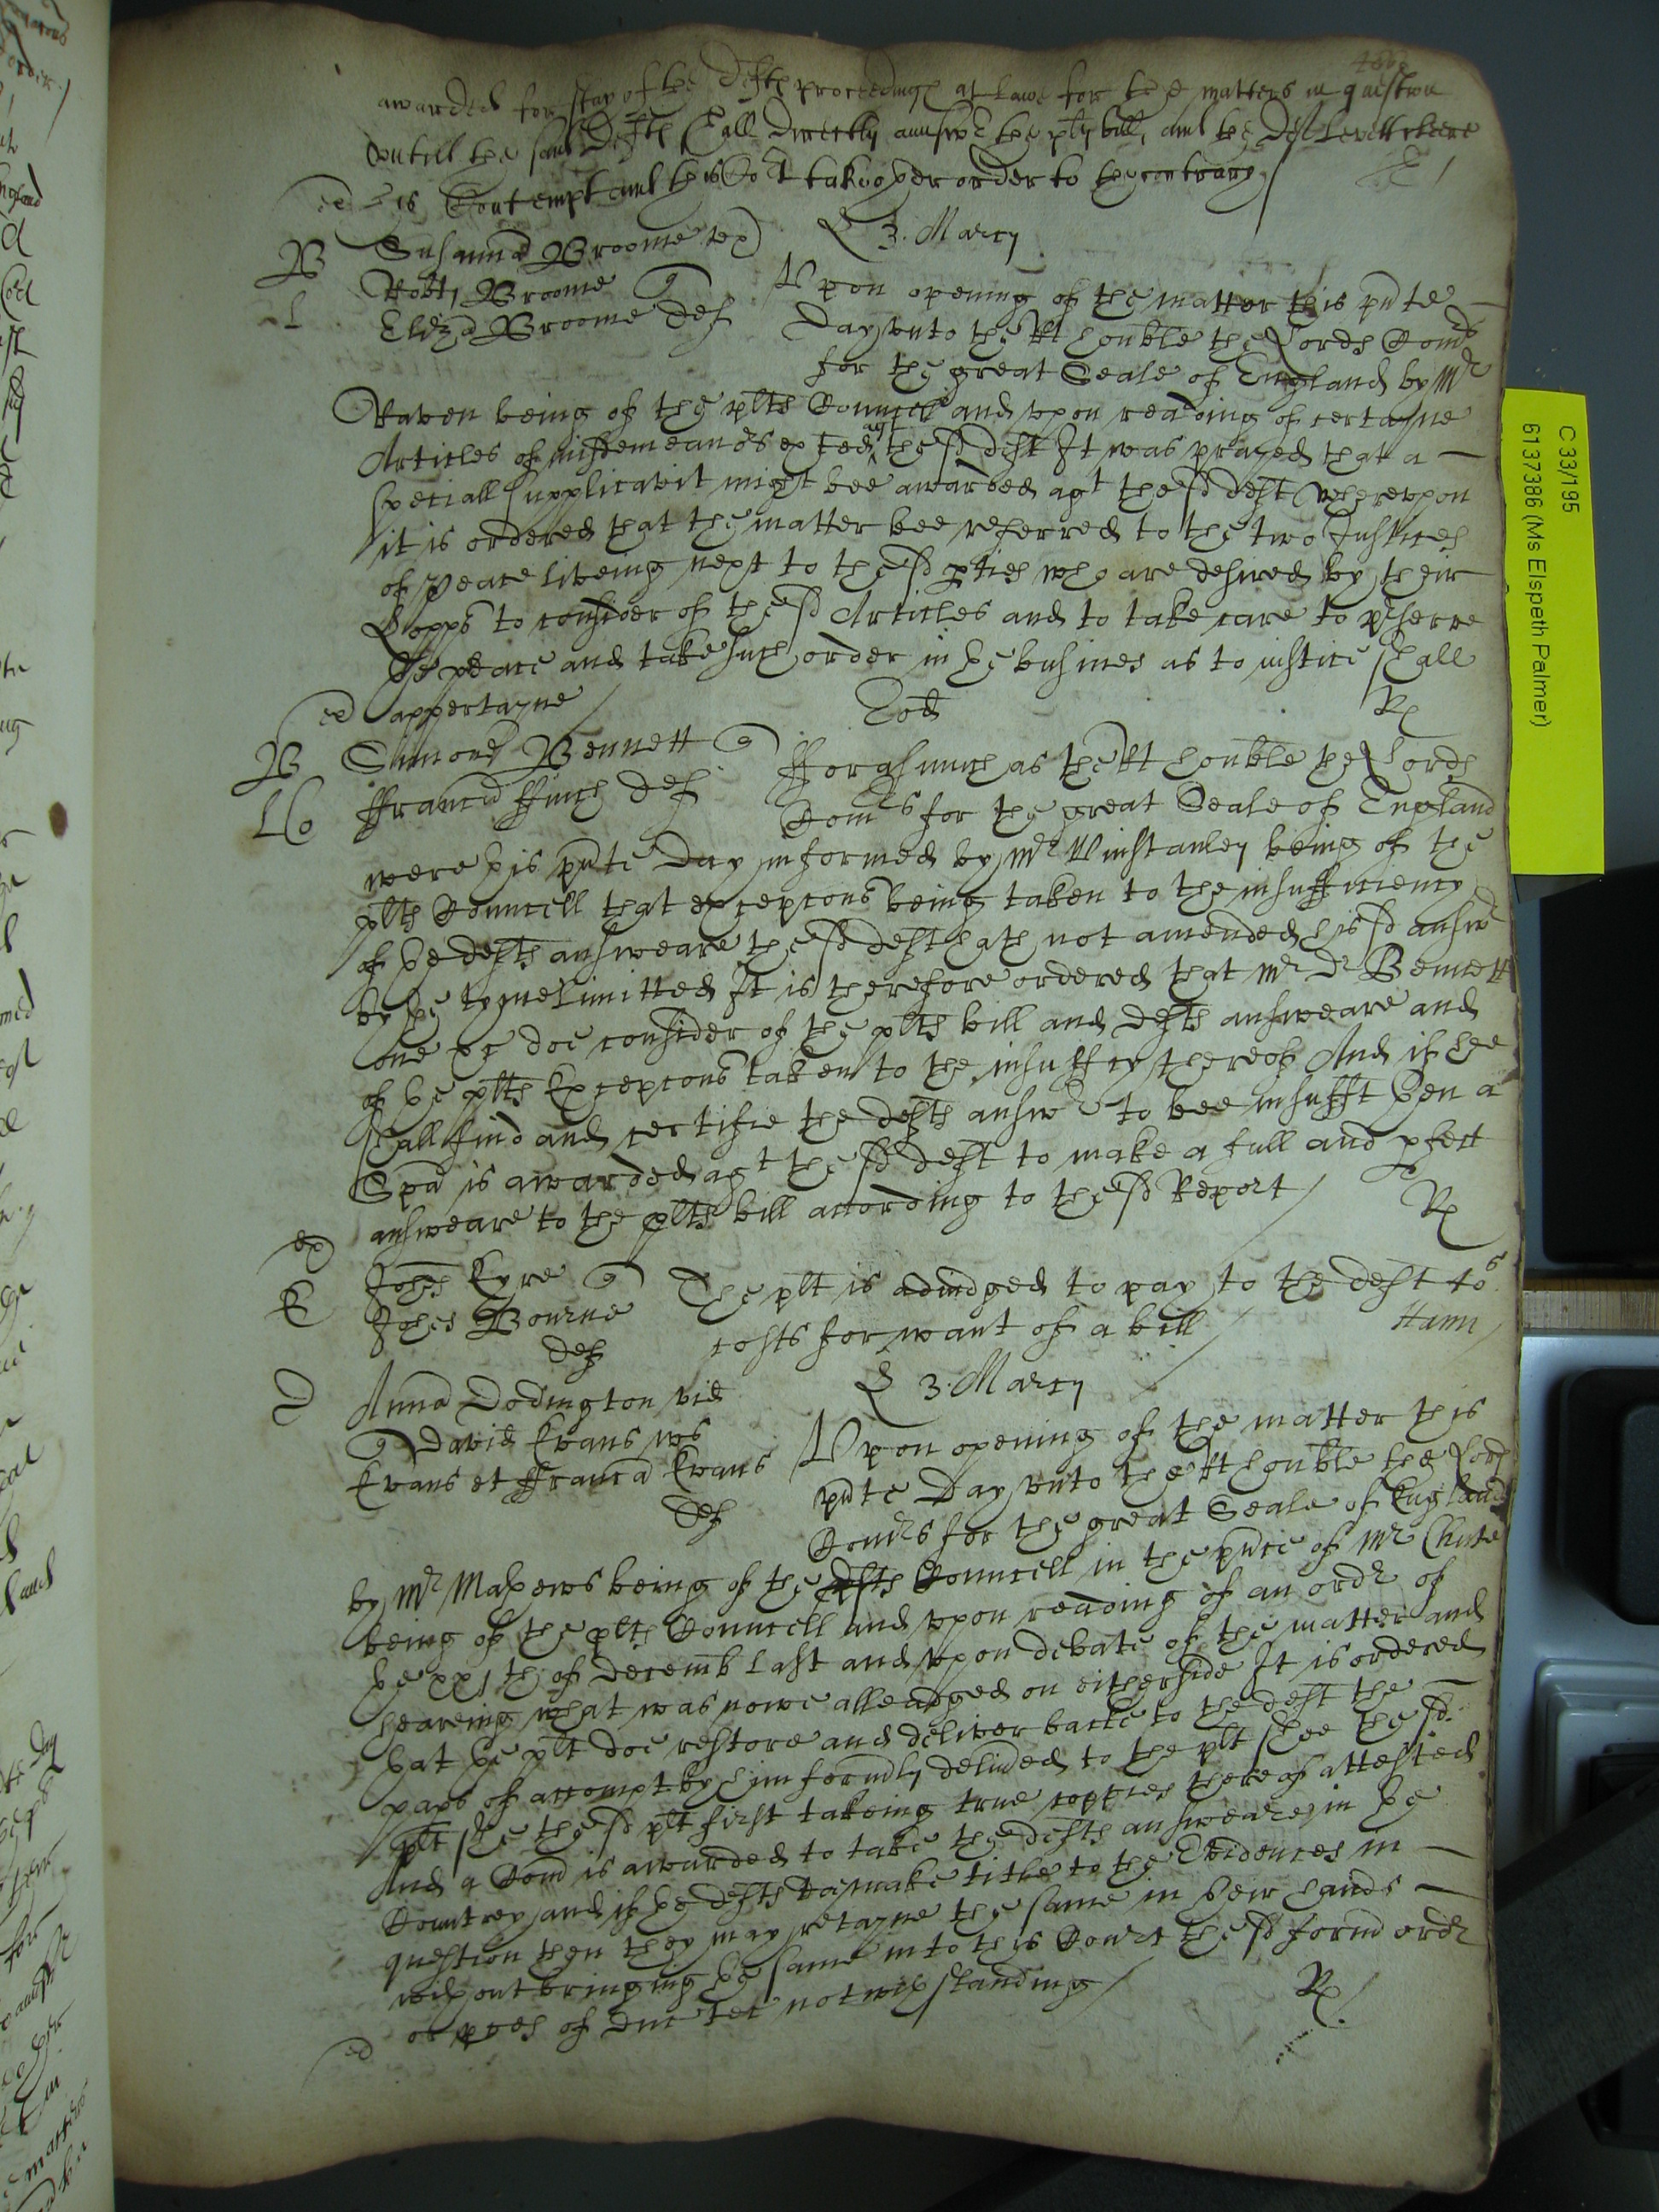 awarded for stay of the Defts proceedings at Lawe for the matters in question
untill the said Defts shall directly answe the plts bill, and the Deft cleere
his Contempt and this Cort take other order to the contrary /
R 3. Marcy
B
Susanna Broome
Robt Broome q
Eliza Broome def
Upon opening of the matter this pnte
Day unto the Rt honble the Lords Comrs
for the great Seale of England by Mr
Raven being of the plts Councell and upon reading of certayne
Articles of misdemeanors exhted agt the sd deft It was prayed that a
speciall supplicavit might bee awarded agt the sd deft Whereupon
it is ordered that the matter bee referred to the two Justices
of Peace liveing next to the sd pties who are desired by their
Lopps to consider of the sd Articles and to take care to pserve
the peace and take such order in the busines as to justice shall
appertayne /
Eod
Rx
B
Simond Bennett q
Francis ffinch def
fforasmuch as the Rt honble the Lords
Comrs for the great Seale of England
were this pnte Day informed by Mr Winstanley being of the
plts Councell that excepcons being taken to the insufficiency
of the defts answeare the sd deft hath not amended his sd answ
by the tyme limitted It is therefore ordered that Mr Dr Bennett
one &c doe consider of the plts bill and defts answeare and
of the plts Excepcons taken to the insuffcy thereof And if hee
shall find and certifie the defts answr to bee insufft then a
Spa is awarded agt the sd deft to make a full and pfect
answeare to the plts bill according to the sd Report /
Rx
E
Johes Eyre q
Johes Bourne
def
The plt is adiudged to pay to the deft 40s
costs for want of a bill /
Hann
R 3. Marcy
D
Anna Dodington vid
q David Evans
Evans et ffrancis Evans
Def
Upon opening of the matter this
pnte Day unto the Rt honble the Lords
Comrs for the great Seale of England
by Mr Mathews being of the defts Councell in the pnce of Mr Chute
being of the plts Councell and upon reading of an ordr of
the xxjth of Decemb last and upon debate of the matter and
heareing what was nowe alleadged on either side It is ordered
that the plt doe restore and deliver backe to the deft the
paps of accompt by him formly delived to the plt shee the sd
plt shee the sd plt first takeing true coppies thereof attested
And a Comn is awarded to take the defts answeare in the
Countrey and if the defts doe make title to the Evidences in
question then they may retayne the same in their hands
without bringing the same into this Court the sd form ordr
or pces of Duc tec notwithstanding /
Rx /
C 33/195
6137386 (Ms Elspeth Palmer)